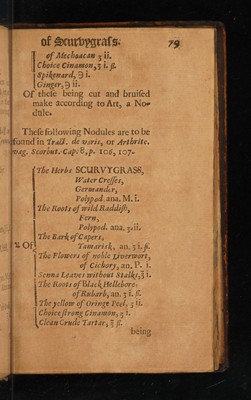 of Scurvygrass.
79
of Mechoacan ʒ ii.
Choice Cinamon, ʒ i. ß.
Spikenard, ℈ i.
Ginger, ℈ ii.
Of these being cut and bruised
make according to Art, a No-
dule.
These following Nodules are to be
found in Tract. de variis, or Arthrite.
vag. Scorbut. Cap: 8, p. 106, 107.
The Herbs SCURVYGRASS,
Water Cresses,
Germander,
Polypod. ana. M. i.
The Roots of wild Raddish,
Fern,
Polypod. ana. ʒ.ii.
The Bark of Capers,
Tamarisk, an. ʒ i. ß.
Of
The Flowers of noble Liverwort,
of Cichory, an, P. i.
Senna Leaves without Stalks, ℥ i.
The Roots of Black Hellebore,
of Rubarb, an. ʒ i. ß.
The yellow of Orange Peel, ʒ ii.
Choice strong Cinamon, ʒ i.
Clean Crude Tartar, ℥ ß.
being